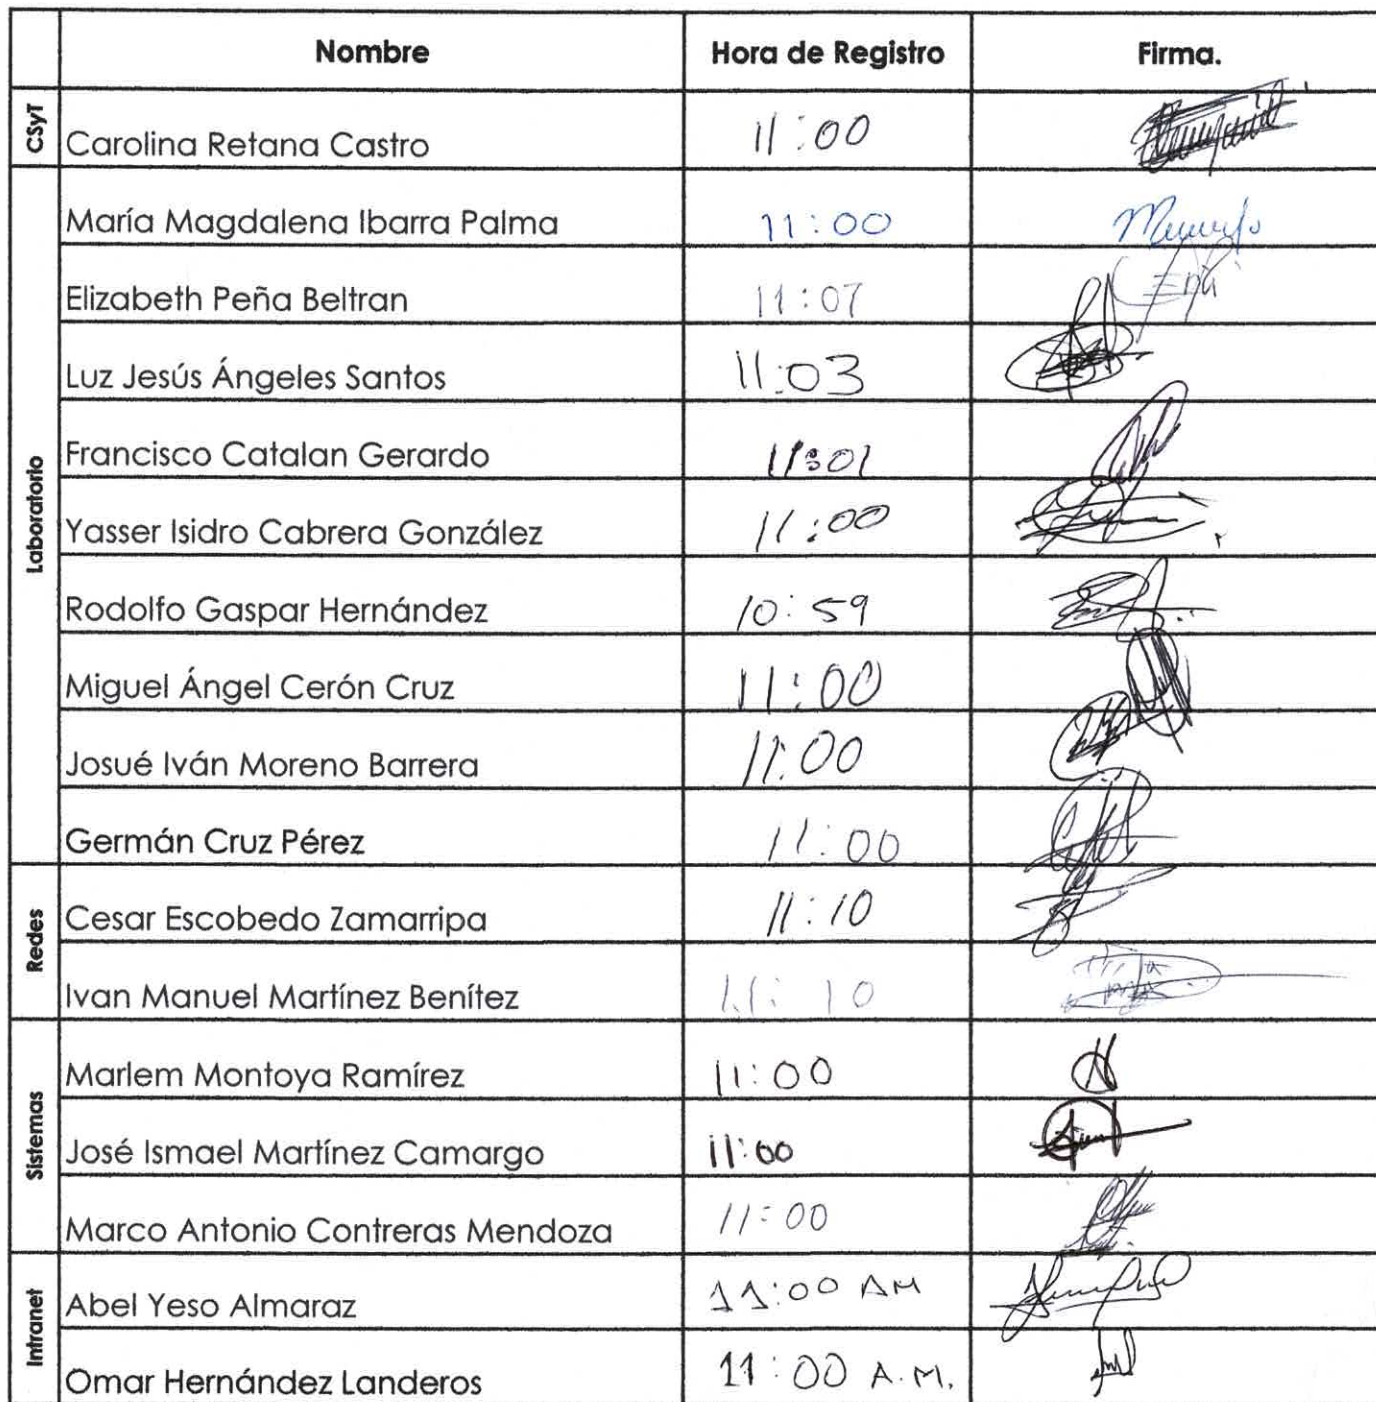 Nombre Hora de Registro Firma.
CSyT
Carolina Retana Castro 11:00
Laboratorio
María Magdalena Ibarra Palma 11:00
Elizabeth Peña Beltran 11:07
Luz Jesús Ángeles Santos 11:03
Francisco Catalan Gerardo 11:01
Yasser Isidro Cabrera González 11:00
Rodolfo Gaspar Hernández 10:59
Miguel Ángel Cerón Cruz 11:00
Josué Iván Moreno Barrera 11:00
Germán Cruz Pérez 11:00
Redes
Cesar Escobedo Zamarripa 11:10
Ivan Manuel Martínez Benítez 11:10
Sistemas
Marlem Montoya Ramírez 11:00
José Ismael Martínez Camargo 11:00
Marco Antonio Contreras Mendoza 11:00
Intranet
Abel Yeso Almaraz 11:00 AM
Omar Hernández Landeros 11:00 A.M.